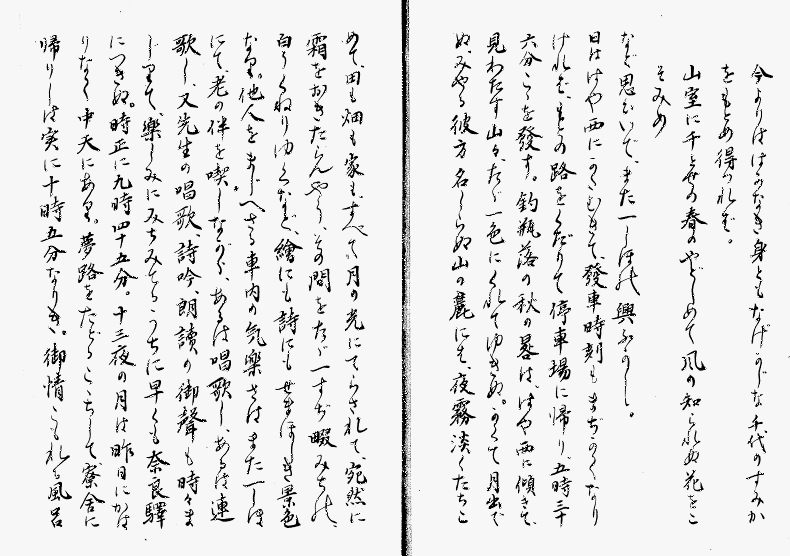 今よりははかなき身ともなげかじな千代のすみか
をもとめ得つれば。
山室に千とせの春のやどしめて風の知られぬ花をこ
そみめ
など思ひいで、また一しほの興ふかし。
日ははや西にかたむきて、發車時刻もまぢかくなり
ければ、もとの路をくだりて停車場に帰り、五時三十
六分こゝを發す。釣瓶落の秋の暮は、はや西に傾きて、
見わたす山々、たゞ一色にくれてゆきぬ。かくて月出で
ぬ、みやる彼方名しらぬ山の麓にも、夜霧淡くたちこ
めて、田も畑も家も、すべて月の光にてらされて、宛然に
霜をおきたらんやう、その間をたゞ一すぢ畷みちの、
白うくねりゆくなど、繪にも詩にもせまほしき景色
なり。他人をまじへざる車内の気楽さはまた一しほ
にて、老の伴を喫しながら、あるは唱歌し、あるは連
歌し、又先生の唱歌、詩吟、朗讀の御聲も時々ま
じりて、樂しみにみちみちたるうちに早くも奈良驛
につきぬ。時正に九時四十五分。十三夜の月は昨日にかは
りなく中天にあり。夢路をたどるこゝちして寮舎に
帰りしは実に十時五分なりき。御情こもれる風呂